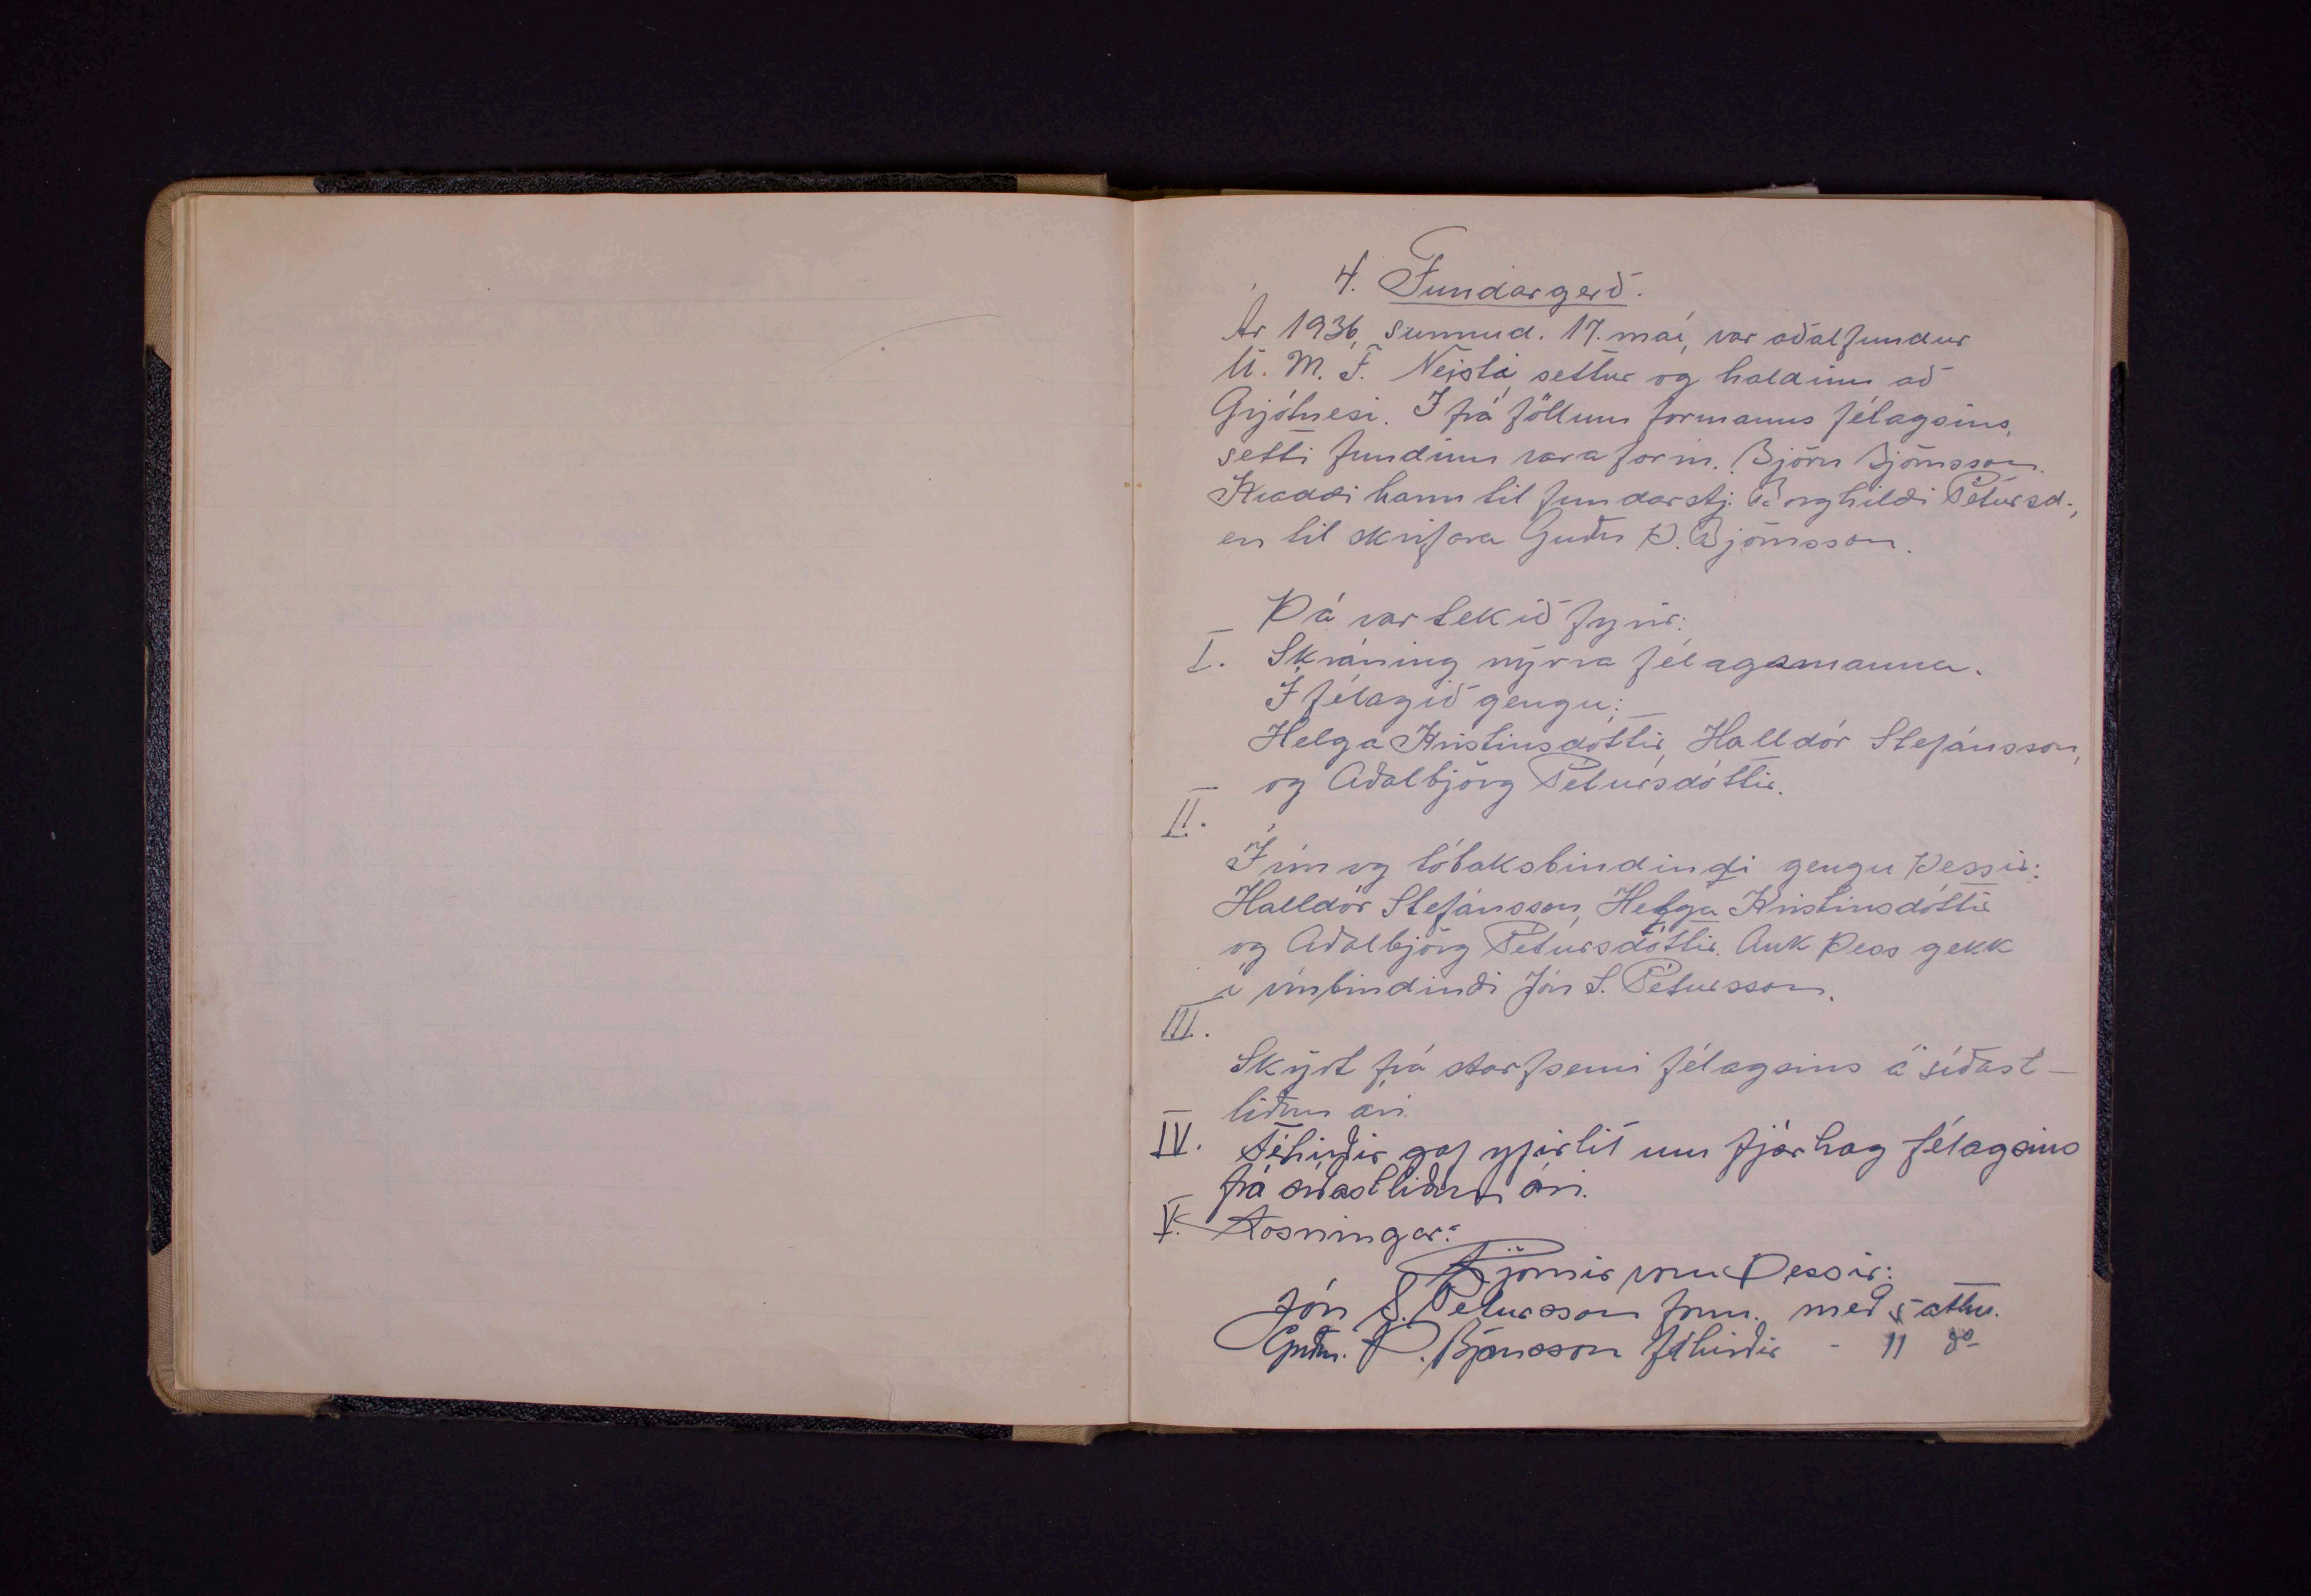 4. Fundargerð.
Ár 1936, sunnud. 17. maí, var aðalfundur
U. M. F. Neista, settur og haldinn að
Grjótnesi. Í fráföllum formanns félagsins,
setti fundinn varaform. Björn Björnsson.
Kvaddi hann til fundarstj. Borghildi Pétursd.,
en til skrifara Guðm Þ. Björnsson.
Þá var tekið fyrir:
I. Skráning nýrra félagsmanna.
Í félagið gengu:
Helga Kristinsdóttir, Halldór Stefánsson,
og Aðalbjörg Pétursdóttir.
II.
Í vín og tóbaksbindindi gengu þessir:
Halldór Stefánsson, Helga Kristinsdóttir
og Aðalbjörg Pétursdóttir. Auk þess gekk
í vínbindindi Jón S. Pétursson.
III.
Skýrt frá starfsemi félagsins á síðast-
liðnu ári
IV. Féhirðir gaf yfirlit um fjárhag félagsins
frá síðastliðnu ári.
V. Kosningar:
Kjörnir voru þessir:
Jón S. Pétursson form. með 5 atkv.
Guðm. Þ. Björnsson féhirðir - 11 do-